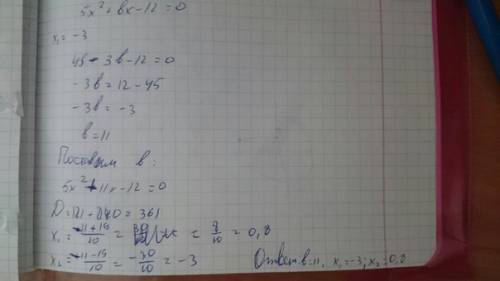 5x² + bx - 12 = 0
x₁ = -3
45 - 3b - 12 = 0
-3b = 12 - 45
-3b = -3
b = 11
Поставим b:
5x² + 11x - 12 = 0
D = 121 + 240 = 361
x₁ = -11+19/10 = = 8/10 = 0,8
x₂ = -11-19/10 = -30/10 = -3
Ответ: b=11, x₁=-3; x₂=0,8